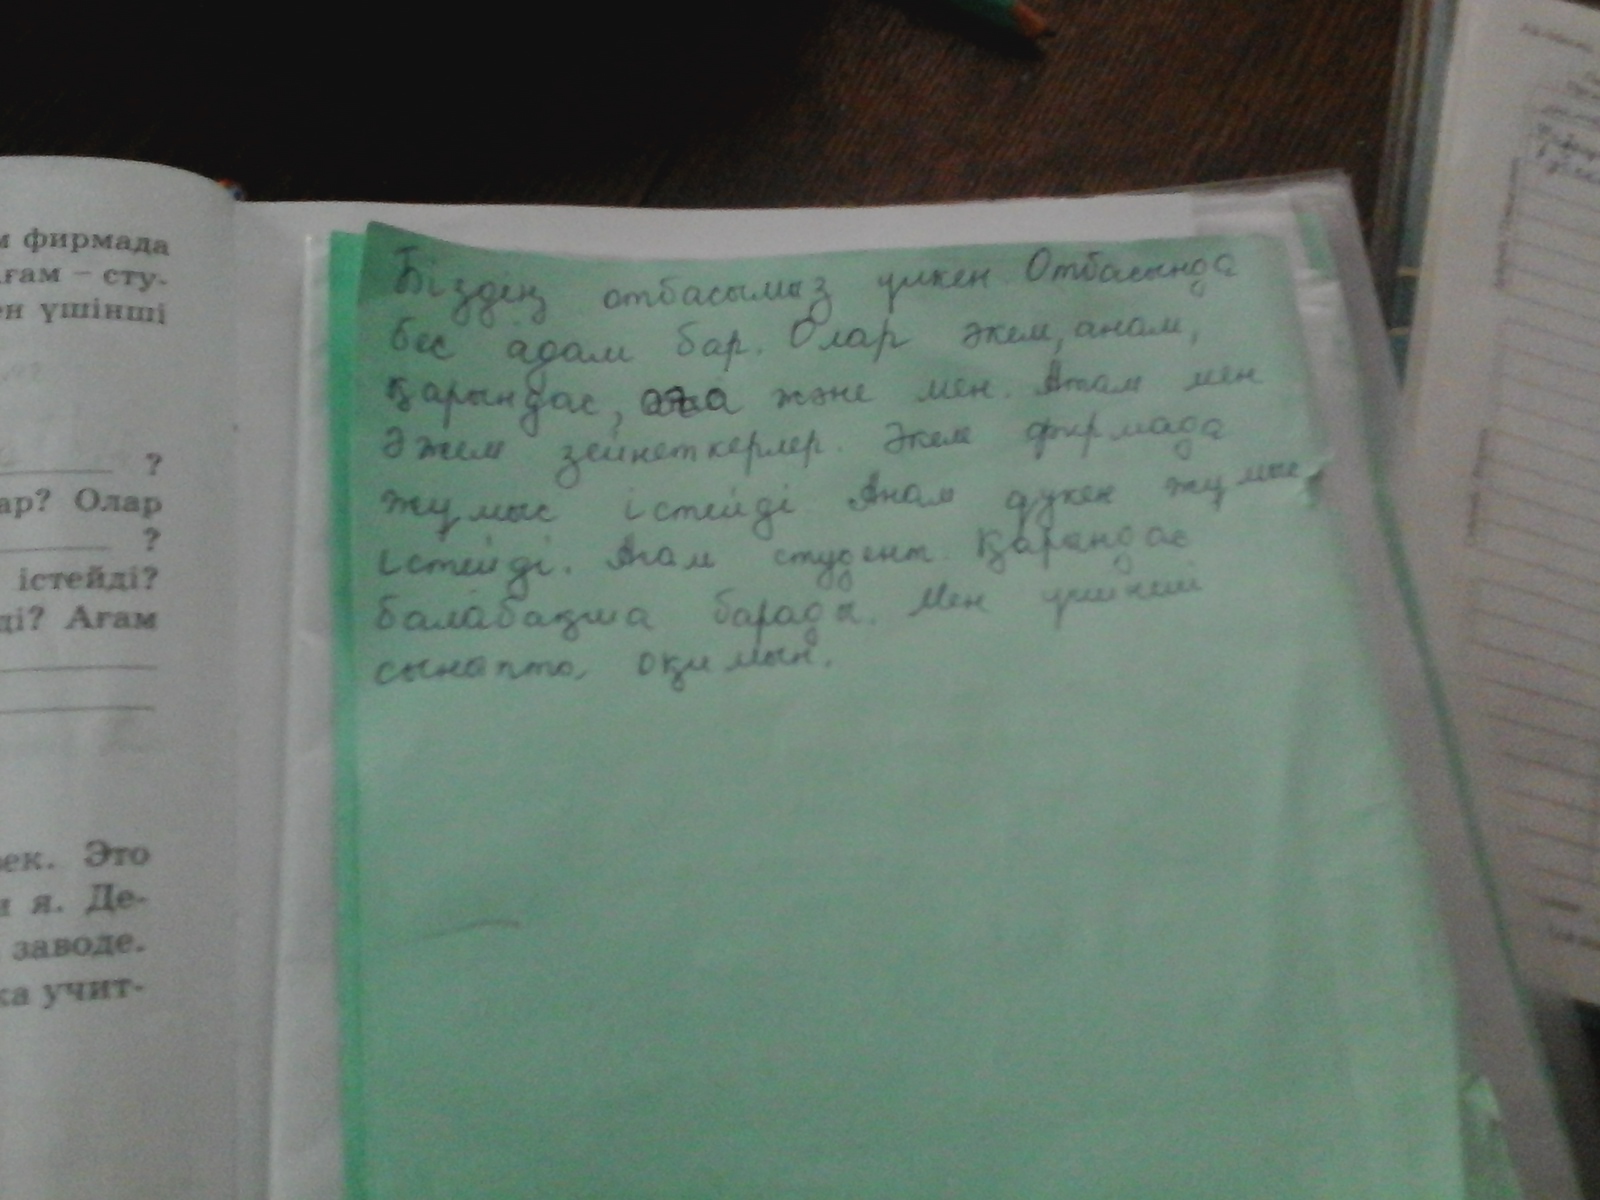 м фирмада
ғам – сту-
ен үшінші
?
ар? Олар
?
істейді?
ді? Ағам
ек. Это
и я. Де-
заводе.
ка учит-
Біздің отбасымыз үлкен. Отбасында
бес адам бар. Олар әкем, анам,
қарындас, аға және мен. Атам мен
Әжем зейнеткерлер. Әкем фирмада
жұмыс істейді Анам дүкен жұмыс
істейді. Ағам студент. Қарындас
балабақша барады. Мен үшінші
сыныпта оқимын.